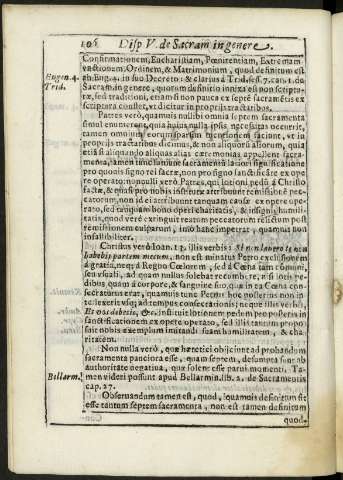 106 Disp V. de Sacram in genere.
Confirmationem, Eucharistiam, Pœnitentiam, Extremam
unctionem, Ordinem, & Matrimonium, quod definitum est
Eugen. 4. ab Eug. 4. in suo Decreto: & clarius à Trid. sess. 7. can. 1. de
Trid. Sacram. in genere, quorum definitio innixa est non scriptu-
ræ, sed traditioni, etiamsi non pauca ex septē sacramētis ex
scriptura constēt, vt dicitur in proprijs tractatibus.
Patres verò, quamuis nullibi omnia septem sacramenta
simul enumerent, quia huius nulla ipsis necessitas occurrit,
tamen omnium eorum sparsim mentionem faciunt, vt in
proprijs tractatibus dicimus, & non aliquorū aliorum, quia
etiā si aliquando aliquas alias ceremonias appellent sacra-
menta, tamen id faciunt sacramenti latiori significatione
pro quouis signo rei sacræ, non pro signo sanctificāte ex ope-
re operato: nonnulli verò Patres, qui lotioni pedū à Christo
factæ, & quasi pro nobis institutæ attribuunt remissionē pec-
catorum, non id ei attribuunt tanquam causæ ex opere ope-
rato, sed tanquam bono operi charitatis, & insignis humili-
tatis, quod verè extinguit reatum peccatorum relictum post
remissionem culparum, imò hanc impetrat, quamuis non
infallibiliter.
Christus verò Ioan. 13. illis verbis: Si non lavero te non
habebis partem mecum, non est minatus Petro exclusionē
à gratia, neq; à Regno Cœlorum, sed à Cœna tam cōmuni,
seu vsuali, ad quam nullas solebat recumbere, nisi lotis pe-
dibus, quam à corpore, & sanguine suo, qua in ea Cœna con-
secraturus erat, quamuis tunc Petrus hoc posterius non in-
tellexerit, vsq; ad tempus consecrationis; neque illis verbis,
Et vos debetis, &c. instituit lotionem pedum pro
sanctificationem ex opere operato, sed illis tantum propo-
suit nobis exemplum imitandi suam humilitatem, & cha-
ritatem.
Non nulla verò, quæ hæretici obijciunt ad probandum
sacramenta pauciora esse, quam septem, desumpta sunt ab
authoritate negatiua, quæ solent esse parui momenti. Ta-
Bellarm. men videri possunt apud Bellarmin. lib. 2. de Sacramentis
cap. 27.
Obseruandum tamen est, quod, quamuis definitum sit
esse tantum septem sacramenta, non est tamen definitum
quod.